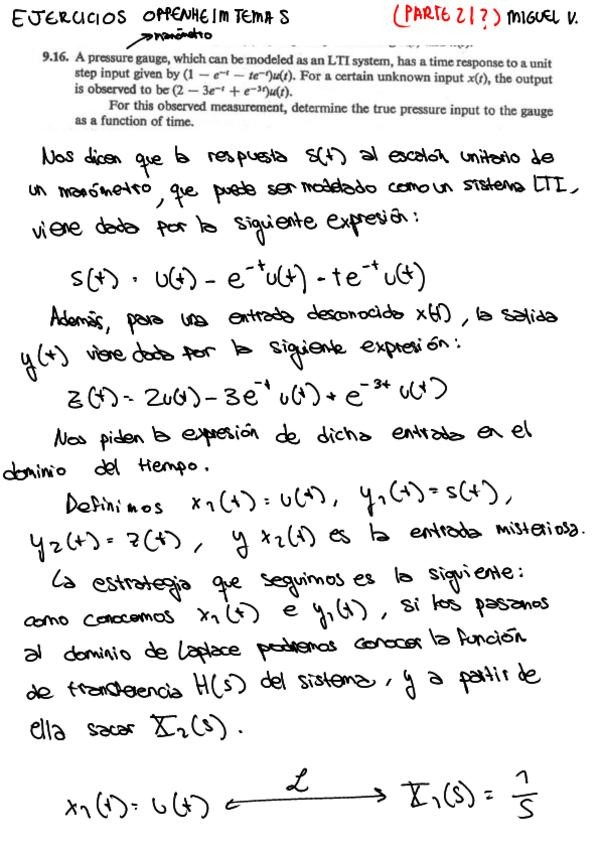 EJERCICIOS OPPENHEIM TEMA 5 (PARTE 2/?) MIGUEL V.
→ manómetro
9.16. A pressure gauge, which can be modeled as an LTI system, has a time response to a unit
step input given by (1 − e⁻ᵗ − te⁻ᵗ)u(t). For a certain unknown input x(t), the output
is observed to be (2 − 3e⁻ᵗ + e⁻³ᵗ)u(t).
For this observed measurement, determine the true pressure input to the gauge
as a function of time.
Nos dicen que la respuesta s(t) al escalón unitario de
un manómetro, que puede ser modelado como un sistema LTI,
viene dada por la siguiente expresión:
s(t) = u(t) - e⁻ᵗu(t) - te⁻ᵗu(t)
Además, para una entrada desconocida x(t), la salida
y(t) viene dada por la siguiente expresión:
z(t) = 2u(t) - 3e⁻ᵗu(t) + e⁻³ᵗu(t)
Nos piden la expresión de dicha entrada en el
dominio del tiempo.
Definimos x₁(t) = u(t), y₁(t) = s(t),
y₂(t) = z(t), y x₂(t) es la entrada misteriosa.
La estrategia que seguimos es la siguiente:
como conocemos x₁(t) e y₁(t), si los pasamos
al dominio de Laplace podremos conocer la función
de transferencia H(s) del sistema, y a partir de
ella sacar X₂(s).
x₁(t) = u(t) ←ℒ→ X₁(s) = 1/s